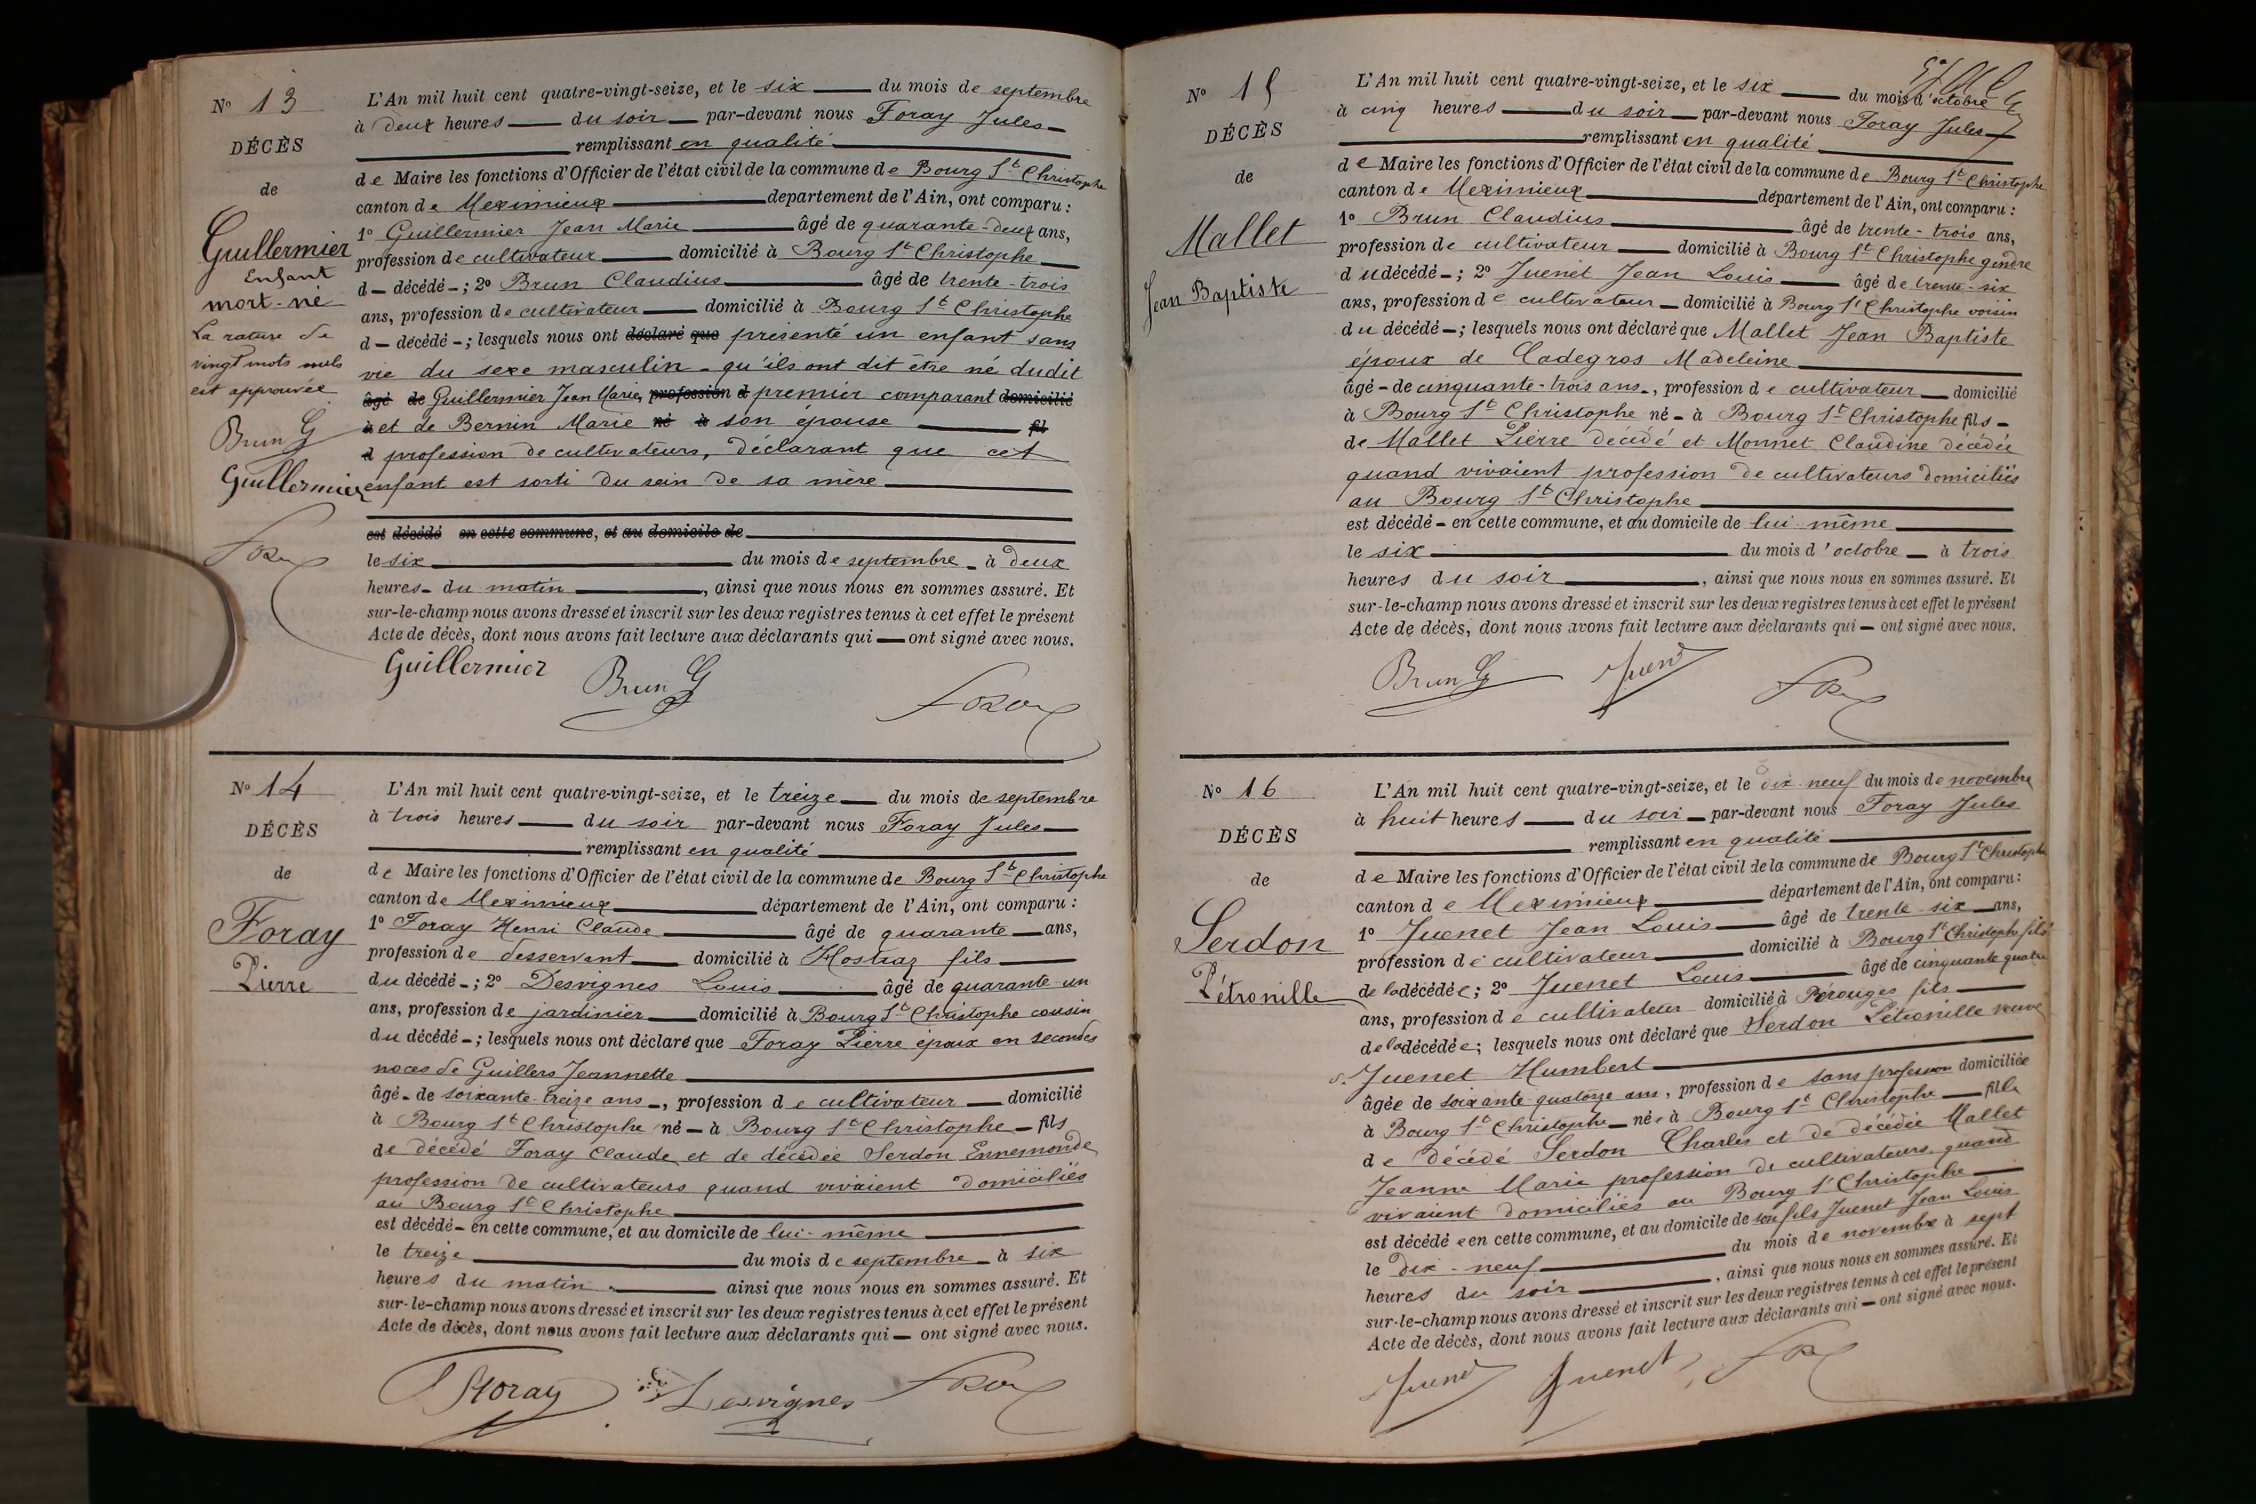 N° 13
DÉCÈS
de
Guillermier
Enfant
mort-né
La rature de
vingt mots nuls
est approuvée
Brun G
Guillermier
L'An mil huit cent quatre-vingt-seize, et le six du mois de septembre
à deux heures du soir par-devant nous Foray Jules
remplissant en qualité
de Maire les fonctions d'Officier de l'état civil de la commune de Bourg St Christophe
canton de Meximieux departement de l'Ain, ont comparu :
1° Guillermier Jean Marie âgé de quarante-deux ans,
profession de cultivateur domicilié à Bourg St Christophe
d — décédé - ; 2° Brun Claudius âgé de trente-trois
ans, profession de cultivateur domicilié à Bourg St Christophe
d — décédé - ; lesquels nous ont déclaré que présenté un enfant sans
vie du sexe masculin - qu'ils ont dit être né dudit
âgé de Guillermier Jean Marie, profession d premier comparant domicilié
à et de Bernin Marie né à son épouse fil
d profession de cultivateurs, déclarant que cet
enfant est sorti du sein de sa mère
est décédé en cette commune, et au domicile de
le six du mois de septembre - à deux
heures - du matin, ainsi que nous nous en sommes assuré. Et
sur-le-champ nous avons dressé et inscrit sur les deux registres tenus à cet effet le présent
Acte de décès, dont nous avons fait lecture aux déclarants qui — ont signé avec nous.
Guillermier Brun G Foray
N° 14
DÉCÈS
de
Foray
Pierre
L'An mil huit cent quatre-vingt-seize, et le treize du mois de septembre
à trois heures du soir par-devant nous Foray Jules
remplissant en qualité
de Maire les fonctions d'Officier de l'état civil de la commune de Bourg St Christophe
canton de Meximieux département de l'Ain, ont comparu :
1° Foray Henri Claude âgé de quarante ans,
profession de desservant domicilié à Hostiaz fils
du décédé - ; 2° Desvignes Louis âgé de quarante-un
ans, profession de jardinier domicilié à Bourg St Christophe cousin
du décédé - ; lesquels nous ont déclaré que Foray Pierre époux en secondes
noces de Guillers Jeannette
âgé - de soixante-treize ans -, profession de cultivateur domicilié
à Bourg St Christophe né - à Bourg St Christophe - fils
de décédé Foray Claude et de décédée Serdon Ennemonde
profession de cultivateurs quand vivaient domiciliés
au Bourg St Christophe
est décédé - en cette commune, et au domicile de lui-même
le treize du mois de septembre - à six
heures du matin ainsi que nous nous en sommes assuré. Et
sur-le-champ nous avons dressé et inscrit sur les deux registres tenus à cet effet le présent
Acte de décès, dont nous avons fait lecture aux déclarants qui — ont signé avec nous.
Foray Desvignes Foray
N° 15
DÉCÈS
de
Mallet
Jean Baptiste
L'An mil huit cent quatre-vingt-seize, et le six du mois d'octobre
à cinq heures du soir par-devant nous Foray Jules
remplissant en qualité
de Maire les fonctions d'Officier de l'état civil de la commune de Bourg St Christophe
canton de Meximieux département de l'Ain, ont comparu :
1° Brun Claudius âgé de trente-trois ans,
profession de cultivateur domicilié à Bourg St Christophe gendre
du décédé - ; 2° Juenet Jean Louis âgé de trente-six
ans, profession de cultivateur domicilié à Bourg St Christophe voisin
du décédé - ; lesquels nous ont déclaré que Mallet Jean Baptiste
époux de Cadegros Madeleine
âgé - de cinquante-trois ans -, profession de cultivateur domicilié
à Bourg St Christophe né - à Bourg St Christophe fils -
de Mallet Pierre décédé et Monnet Claudine décédée
quand vivaient profession de cultivateurs domiciliés
au Bourg St Christophe
est décédé - en cette commune, et au domicile de lui-même
le six du mois d'octobre - à trois
heures du soir, ainsi que nous nous en sommes assuré. Et
sur-le-champ nous avons dressé et inscrit sur les deux registres tenus à cet effet le présent
Acte de décès, dont nous avons fait lecture aux déclarants qui — ont signé avec nous.
Brun G Juenet Foray
N° 16
DÉCÈS
de
Serdon
Pétronille
L'An mil huit cent quatre-vingt-seize, et le dix-neuf du mois de novembre
à huit heures du soir par-devant nous Foray Jules
remplissant en qualité
de Maire les fonctions d'Officier de l'état civil de la commune de Bourg St Christophe
canton de Meximieux département de l'Ain, ont comparu :
1° Juenet Jean Louis âgé de trente-six ans,
profession de cultivateur domicilié à Bourg St Christophe fils
de la décédée ; 2° Juenet Louis âgé de cinquante quatre
ans, profession de cultivateur domicilié à Pérouges fils
de la décédée ; lesquels nous ont déclaré que Serdon Pétronille veuve
Juenet Humbert
âgée de soixante-quatorze ans, profession de sans profession domiciliée
à Bourg St Christophe née à Bourg St Christophe fille
de décédé Serdon Charles et de décédée Mallet
Jeanne Marie profession de cultivateurs quand
vivaient domiciliés au Bourg St Christophe
est décédée en cette commune, et au domicile de son fils Juenet Jean Louis
le dix-neuf du mois de novembre à sept
heures du soir, ainsi que nous nous en sommes assuré. Et
sur-le-champ nous avons dressé et inscrit sur les deux registres tenus à cet effet le présent
Acte de décès, dont nous avons fait lecture aux déclarants qui — ont signé avec nous.
Juenet Juenet Foray